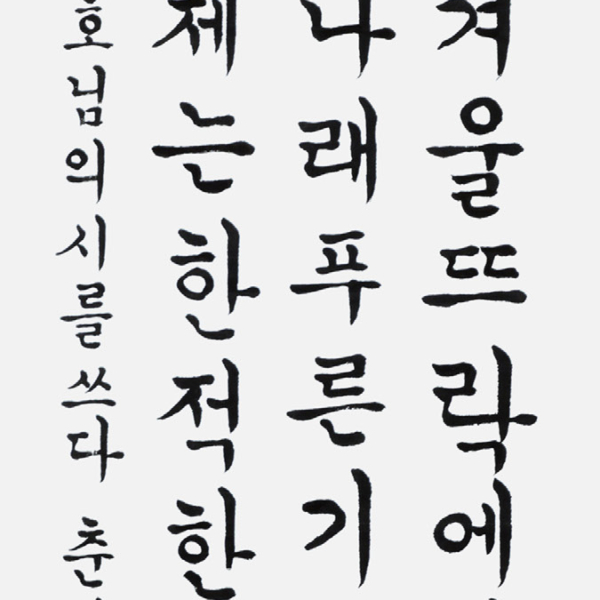 겨울뜨락에
나래푸른기
제는한적한
호님의시를쓰다 춘